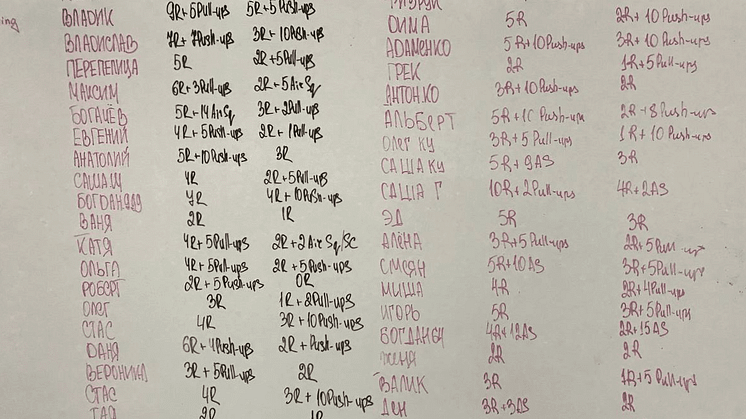 ВЛАДИК 9R+5Pull-ups 5R+5Push-ups
ВЛАДИСЛАВ 7R+7Push-ups 3R+10Push-ups
ПЕРЕПЕЛИЦА 5R 2R+5Pull-ups
МАКСИМ 6R+3Pull-ups 2R+5Air Sq
БОГАЧЁВ 5R+14AirSq 3R+2Pull-ups
ЕВГЕНИЙ 4R+5Push-ups 2R+1Pull-ups
АНАТОЛИЙ 5R+10Push-ups 3R
САШАЩ 4R 2R+5Pull-ups
4R 4R+10Push-ups
ВАНЯ 2R 1R
КАТЯ 4R+5Pull-ups 2R+2Air Sq/SC
ОЛЬГА 4R+5Pull-ups 2R+5Push-ups
РОБЕРТ 2R+5Push-ups 0R
ОЛЕГ 3R 1R+2Pull-ups
СТАС 4R 3R+10Push-ups
ДАНЯ 6R+4Push-ups 2R+Push-ups
ВЕРОНИКА 3R+5Pull-ups 2R
СТАС 4R 3R+10Push-ups
2R 1R
ДИМА 5R 2R+10Push-ups
АДАМЕНКО 5R+10Push-ups 3R+10Push-ups
ГРЕК 2R 1R+5Pull-ups
АНТОНКО 3R+10Push-ups 2R
АЛЬБЕРТ 5R+10Push-ups 2R+8Push-ups
ОЛЕГ КУ 3R+5Pull-ups 1R+10Push-ups
САША КУ 5R+9AS 3R
САША Г 10R+2Pull-ups 4R+2AS
ЭД 5R 3R
АЛЁНА 3R+5Pull-ups 2R+5Pull-ups
СМЕЯН 5R+10AS 3R+5Pull-ups
МИША 4R 2R+4Pull-ups
ИГОРЬ 5R 3R+5Pull-ups
4R+12AS 2R+15AS
ЖЕНЯ 2R 2R
ВАЛИК 3R 1R+5Pull-ups
ДЕН 3R+3AS 2R